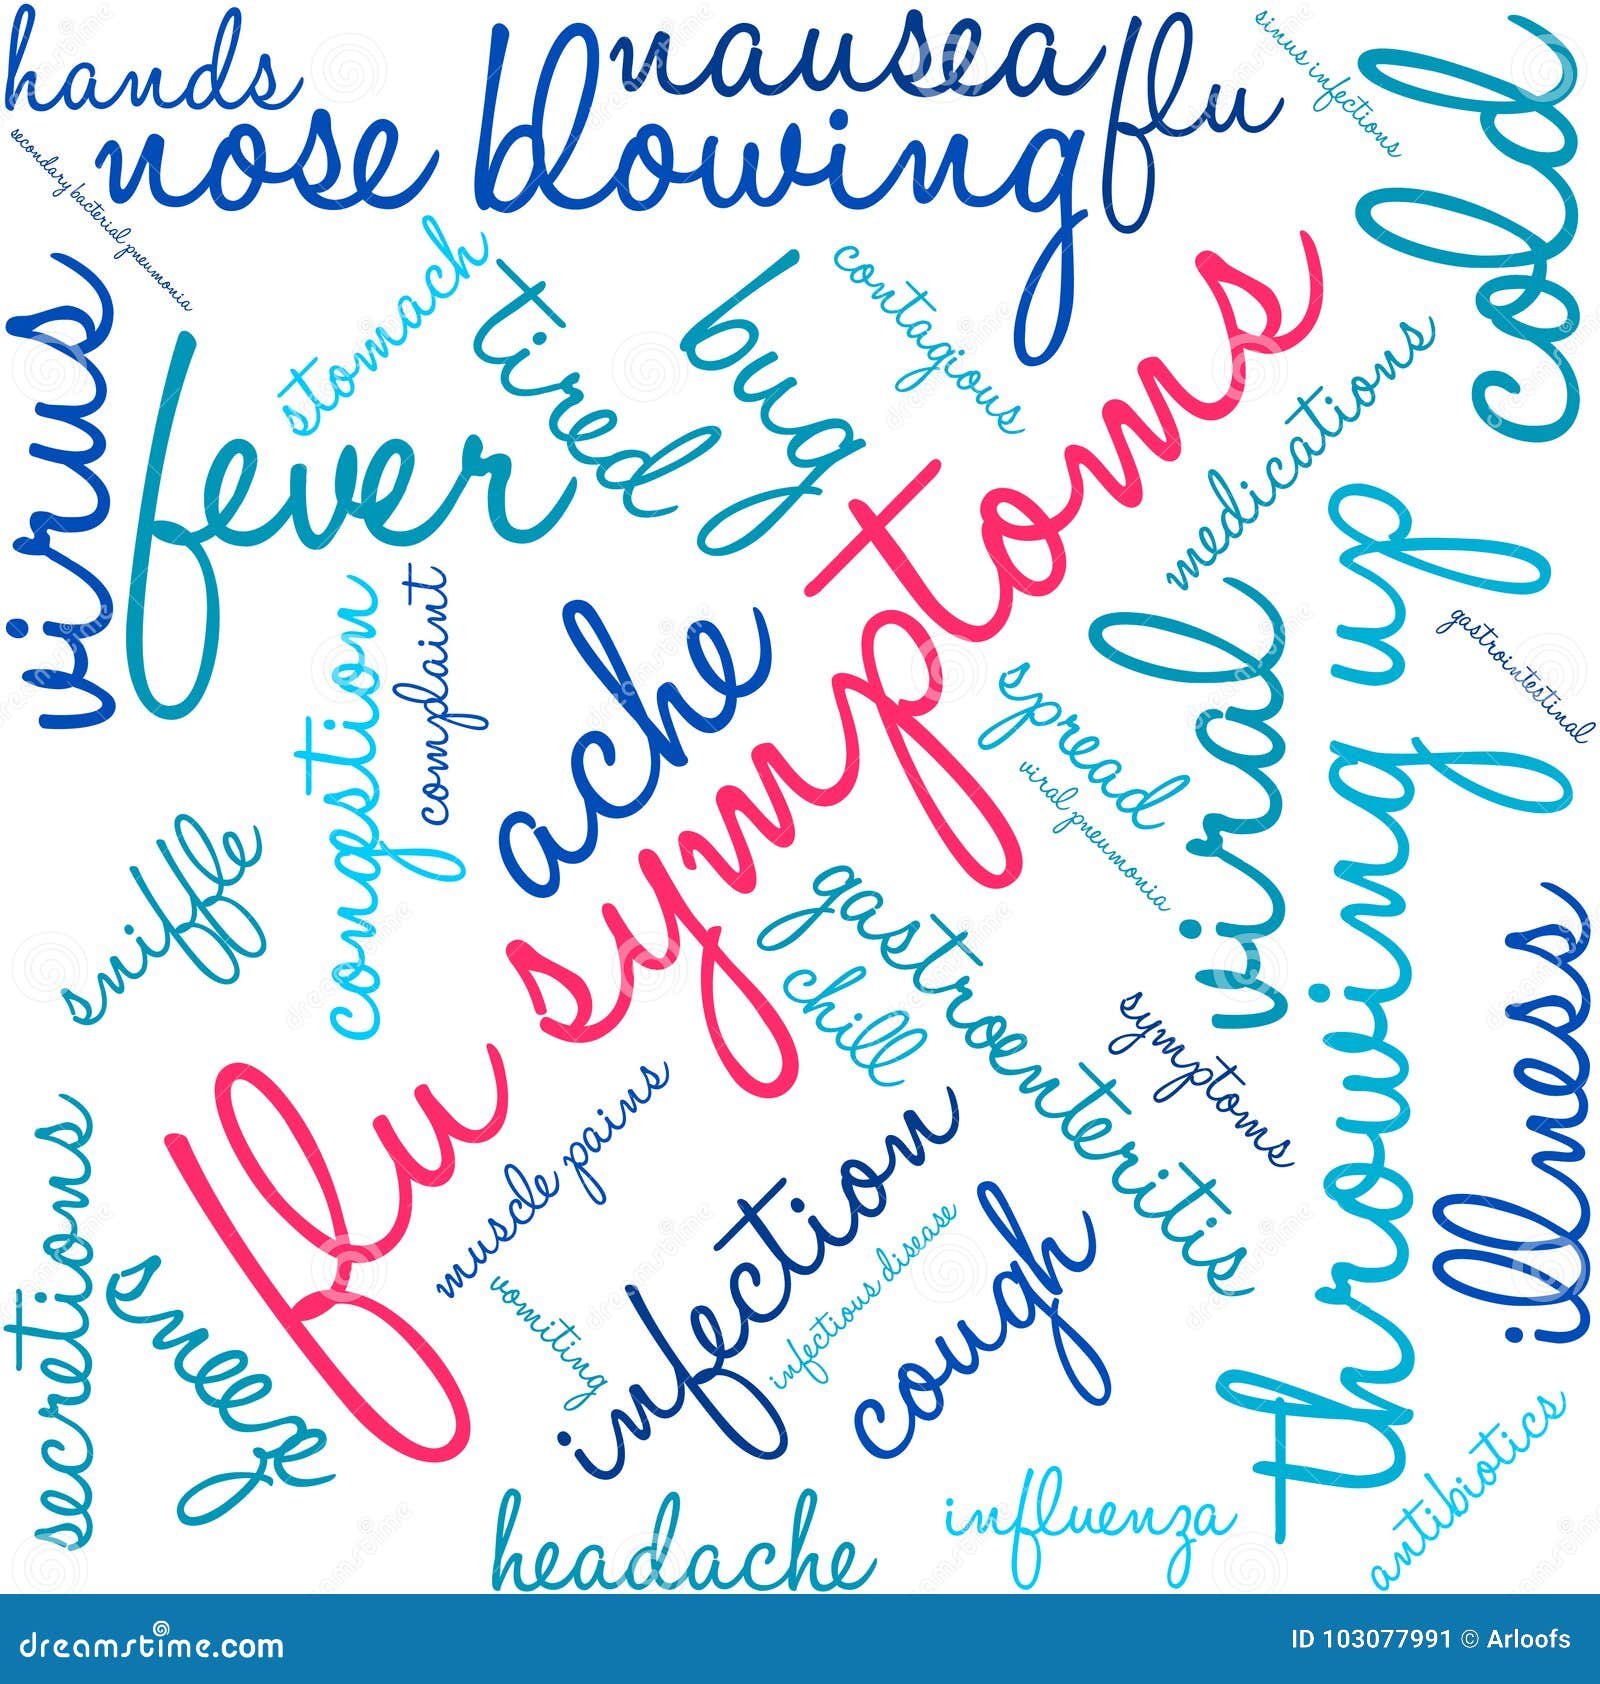 hands
nausea
flu
sinus infections
nose blowing
cold
secondary bacterial pneumonia
virus
stomach
tired
bug
contagious
fever
medications
flu symptoms
congestion
complaint
ache
viral
throwing up
gastrointestinal
spread
viral pneumonia
sniffle
gastroenteritis
chill
symptoms
illness
secretions
sneeze
muscle pains
vomiting
infection
infectious disease
cough
headache
influenza
antibiotics
dreamstime.com
ID 103077991 © Arloofs